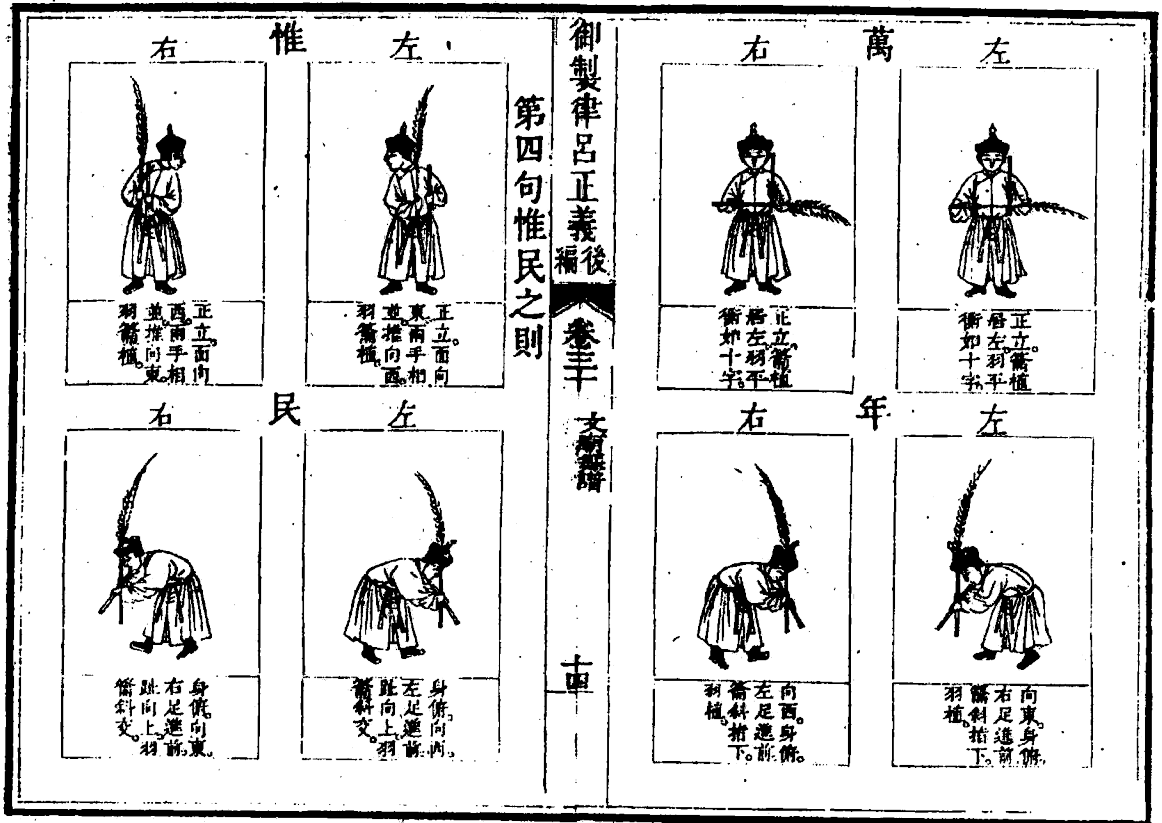 萬
左
正立。籥植
居左。羽平
衡如十字。
右
正立。籥植
居左。羽平
衡如十字。
年
左
向東。身俯。
右足進前。
籥斜指下。
羽植。
右
向西。身俯。
左足進前。
籥斜指下。
羽植。
御製律呂正義後編
卷三十
文廟舞譜
十四
第四句惟民之則
惟
左
正立。面向
東。兩手相
並。推向西。
羽籥植。
右
正立。面向
西。兩手相
並。推向東。
羽籥植。
民
左
身俯。向西。
左足進前。
趾向上。羽
籥斜交。
右
身俯。向東。
右足進前。
趾向上。羽
籥斜交。